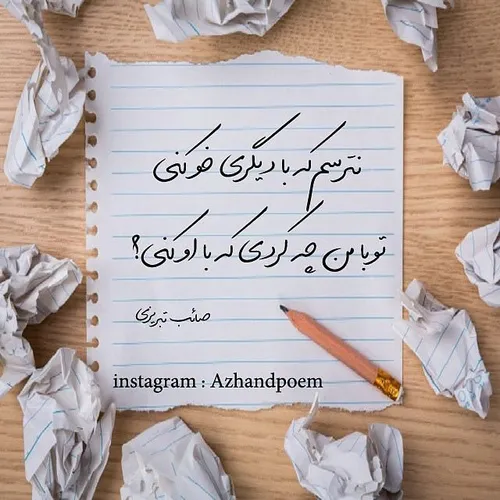 نترسم که با دیگری خو کنی
تو با من چه کردی که با او کنی؟
صائب تبریزی
instagram : Azhandpoem